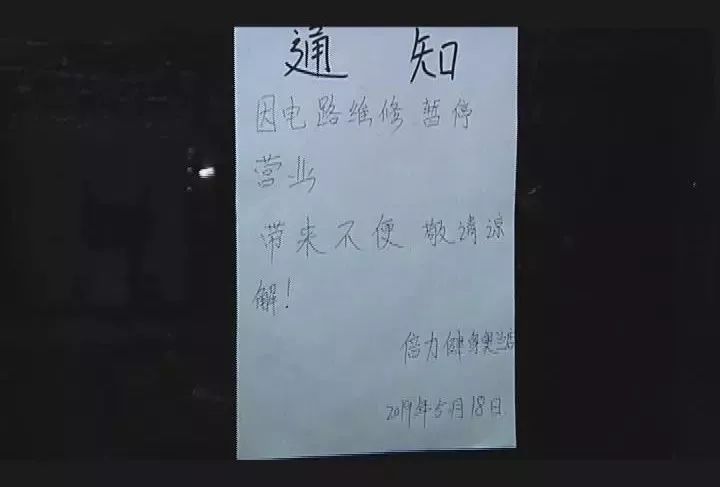 通知
因电路维修暂停
营业
带来不便敬请谅
解！
倍力健身奥兰店
2019年5月18日